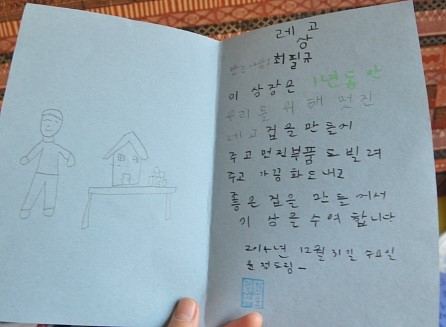 레고
상
만든사람: 최필규
이 상장은 1년동안
우리를 위해 멋진
레고 집을 만들어
주고 멋진부품도 빌려
주고 가끔 화도 내고
좋은 집을 만들어서
이 상을 수여 합니다
2014년 12월 31일 수요일
드림_